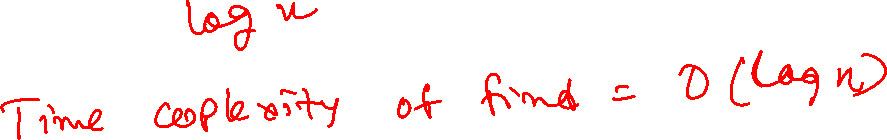 log n
Time coplexity of find = O(log n)